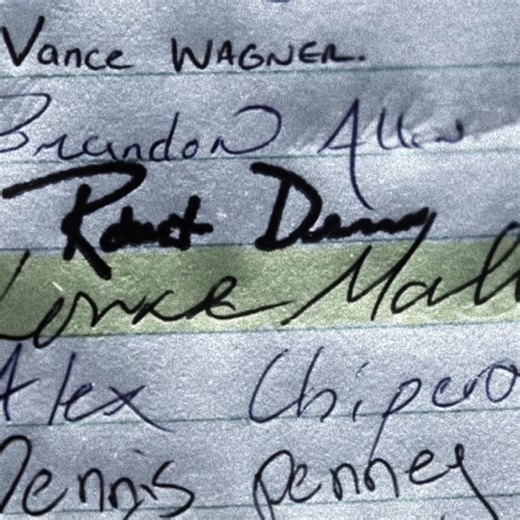 Vance WAGNER.
Brandon Allen
Robert
Alex Chipero
Dennis Penney